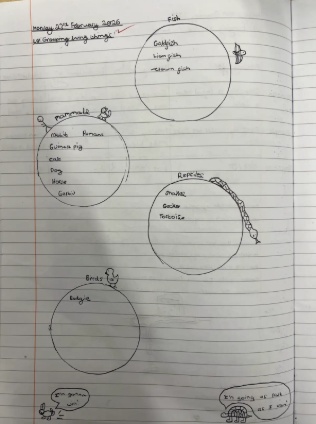 Monday 23rd February 2026
LO Grouping living things
Fish
Goldfish
lion fish
clown fish
mammals
Rabit Humans
Guinea pig
cat
Dog
Horse
Reptiles
Snake
Gecko
Tortoise
Birds
Budgie
I'm going as fast
as I can!